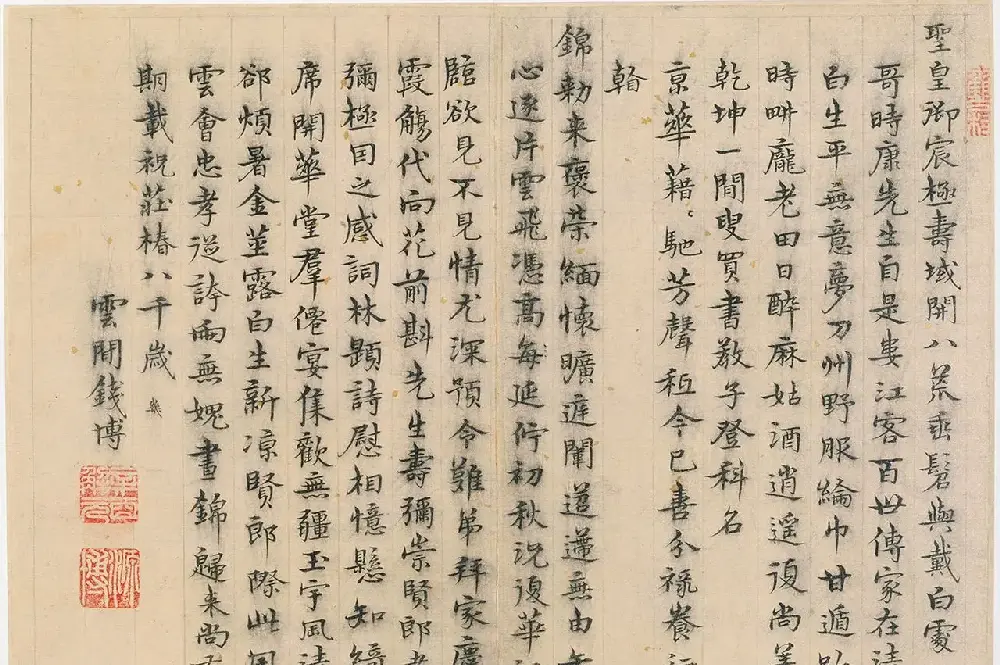 聖皇御宸極壽域開八荒垂髫與戴白處
哥時康先生自是婁江客百世傳家在清
白生平無意夢刀州野服綸巾甘遁
時畊龐老田日醉麻姑酒逍遥復尚羊
乾坤一閒叟買書教子登科名
京華藉馳芳聲秪今已喜分祿養
綸
錦勑来襃荣緬懷曠疪闈迢遰無由
心逐片雲飛憑髙每延佇初秋況復華
臨欲見不見情尤深預令難弟拜家慶
霞觴代向花前斟先生壽彌崇賢郎孝
彌極因之感詞林題詩慰相憶懸知綺
席開華堂羣僊宴集歡無疆玉宇風清
郤煩暑金莖露白生新凉賢郎際此風
雲會忠孝從誇兩無媿晝錦歸来尚有
期載祝莊椿八千歲
雲間錢博